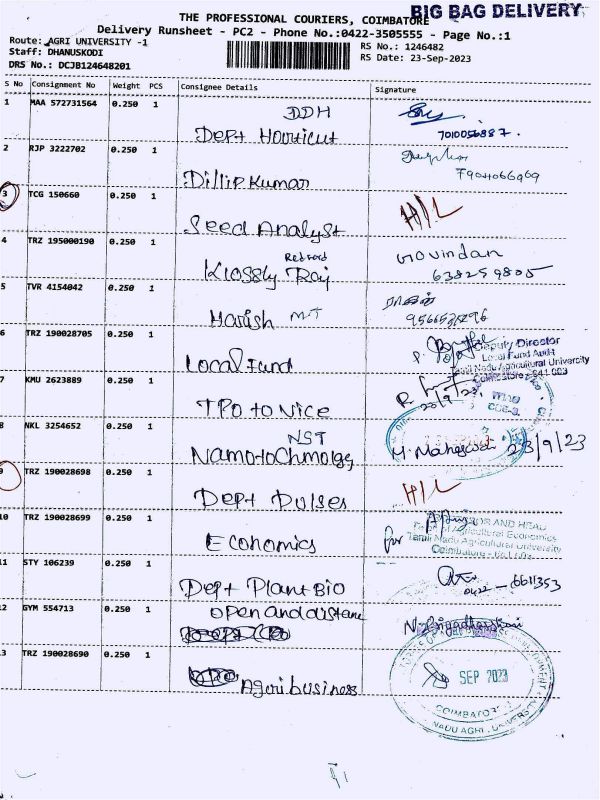 BIG BAG DELIVERY
THE PROFESSIONAL COURIERS, COIMBATORE
Delivery Runsheet - PC2 - Phone No.:0422-3505555 - Page No.:1
Route: AGRI UNIVERSITY -1
RS No.: 1246482
Staff: DHANUSKODI
RS Date: 23-Sep-2023
DRS No.: DCJB124648201
S No Consignment No Weight PCS Consignee Details Signature
1 MAA 572731564 0.250 1 DDH
Dept Horticut 7010056887.
2 RJP 3222702 0.250 1
Dillip Kumar 7904066969
3 TCG 150660 0.250 1
Seed Analyst H/L
4 TRZ 195000190 0.250 1 Redward Govindan
Klossly Raj 638259805
5 TVR 4154042 0.250 1
Harish M-T
6 TRZ 190028705 0.250 1 Deputy Director
Local Fund Local Fund Audit
Tamil Nadu Agricultural University
Coimbatore - 641 003
7 KMU 2623889 0.250 1
TPO to Nice 20/9/23
8 NKL 3254652 0.250 1 NST
Namotochmology M. Maheswari 23/9/23
9 TRZ 190028698 0.250 1 H/L
Dept Pulses
10 TRZ 190028699 0.250 1 AND HEAD
Economics for Agricultural Economics
Tamil Nadu Agricultural University
Coimbatore
11 STY 106239 0.250 1
Dept Plant Bio 0422 - 6611353
12 GYM 554713 0.250 1 open and distance
13 TRZ 190028690 0.250 1
Ageribusiness SEP 2023
COIMBATORE
NADU AGRI. UNIVERSITY